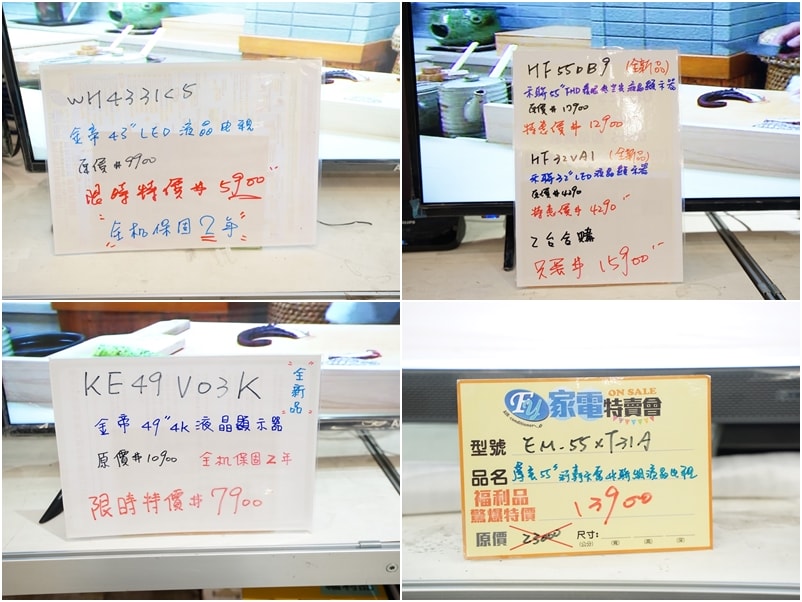 WH433KS
金帝43"LED液晶电視
原價#9900
限時特價#5900
"全机保固2年"
HF55DB9 (全新品)
禾聯55"FHD
液晶顯示器
原價#13900
特惠價#12900
HF32VA1 (全新品)
禾聯32"LED液晶顯示器
原價#4290
特惠價#4290
2台合購
只要#15900
KE49V03K
全新品
金帝49"4K液晶顯示器
原價#10900 全机保固2年
限時特價#7900
EU家電特賣會
ON SALE
型號 EM-55XT31A
品名 聲宝55"
液晶电視
福利品
驚爆特價 13900
原價 23000 尺寸:
(公分) (寬) (高) (深)